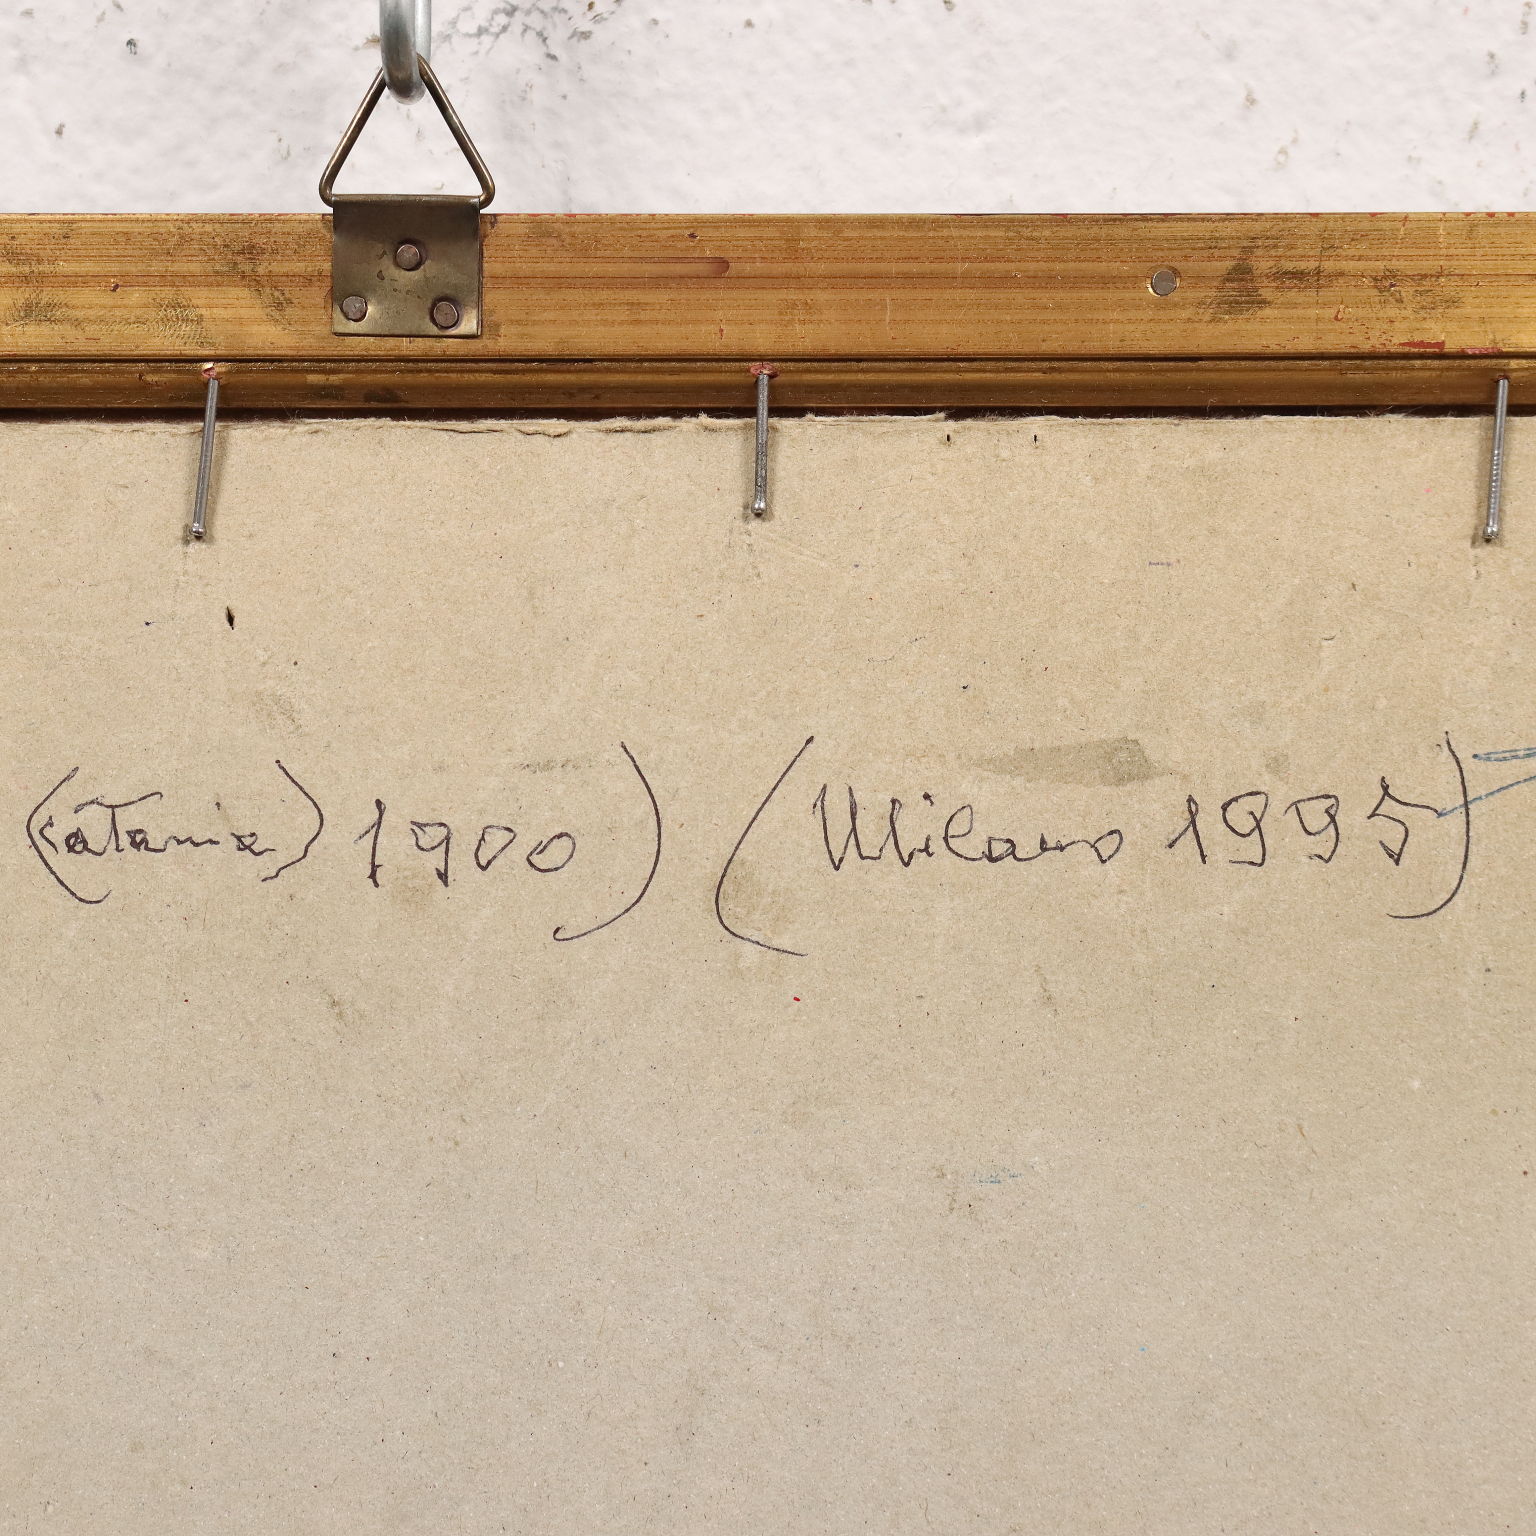 (Catania) 1900) (Milano 1995)